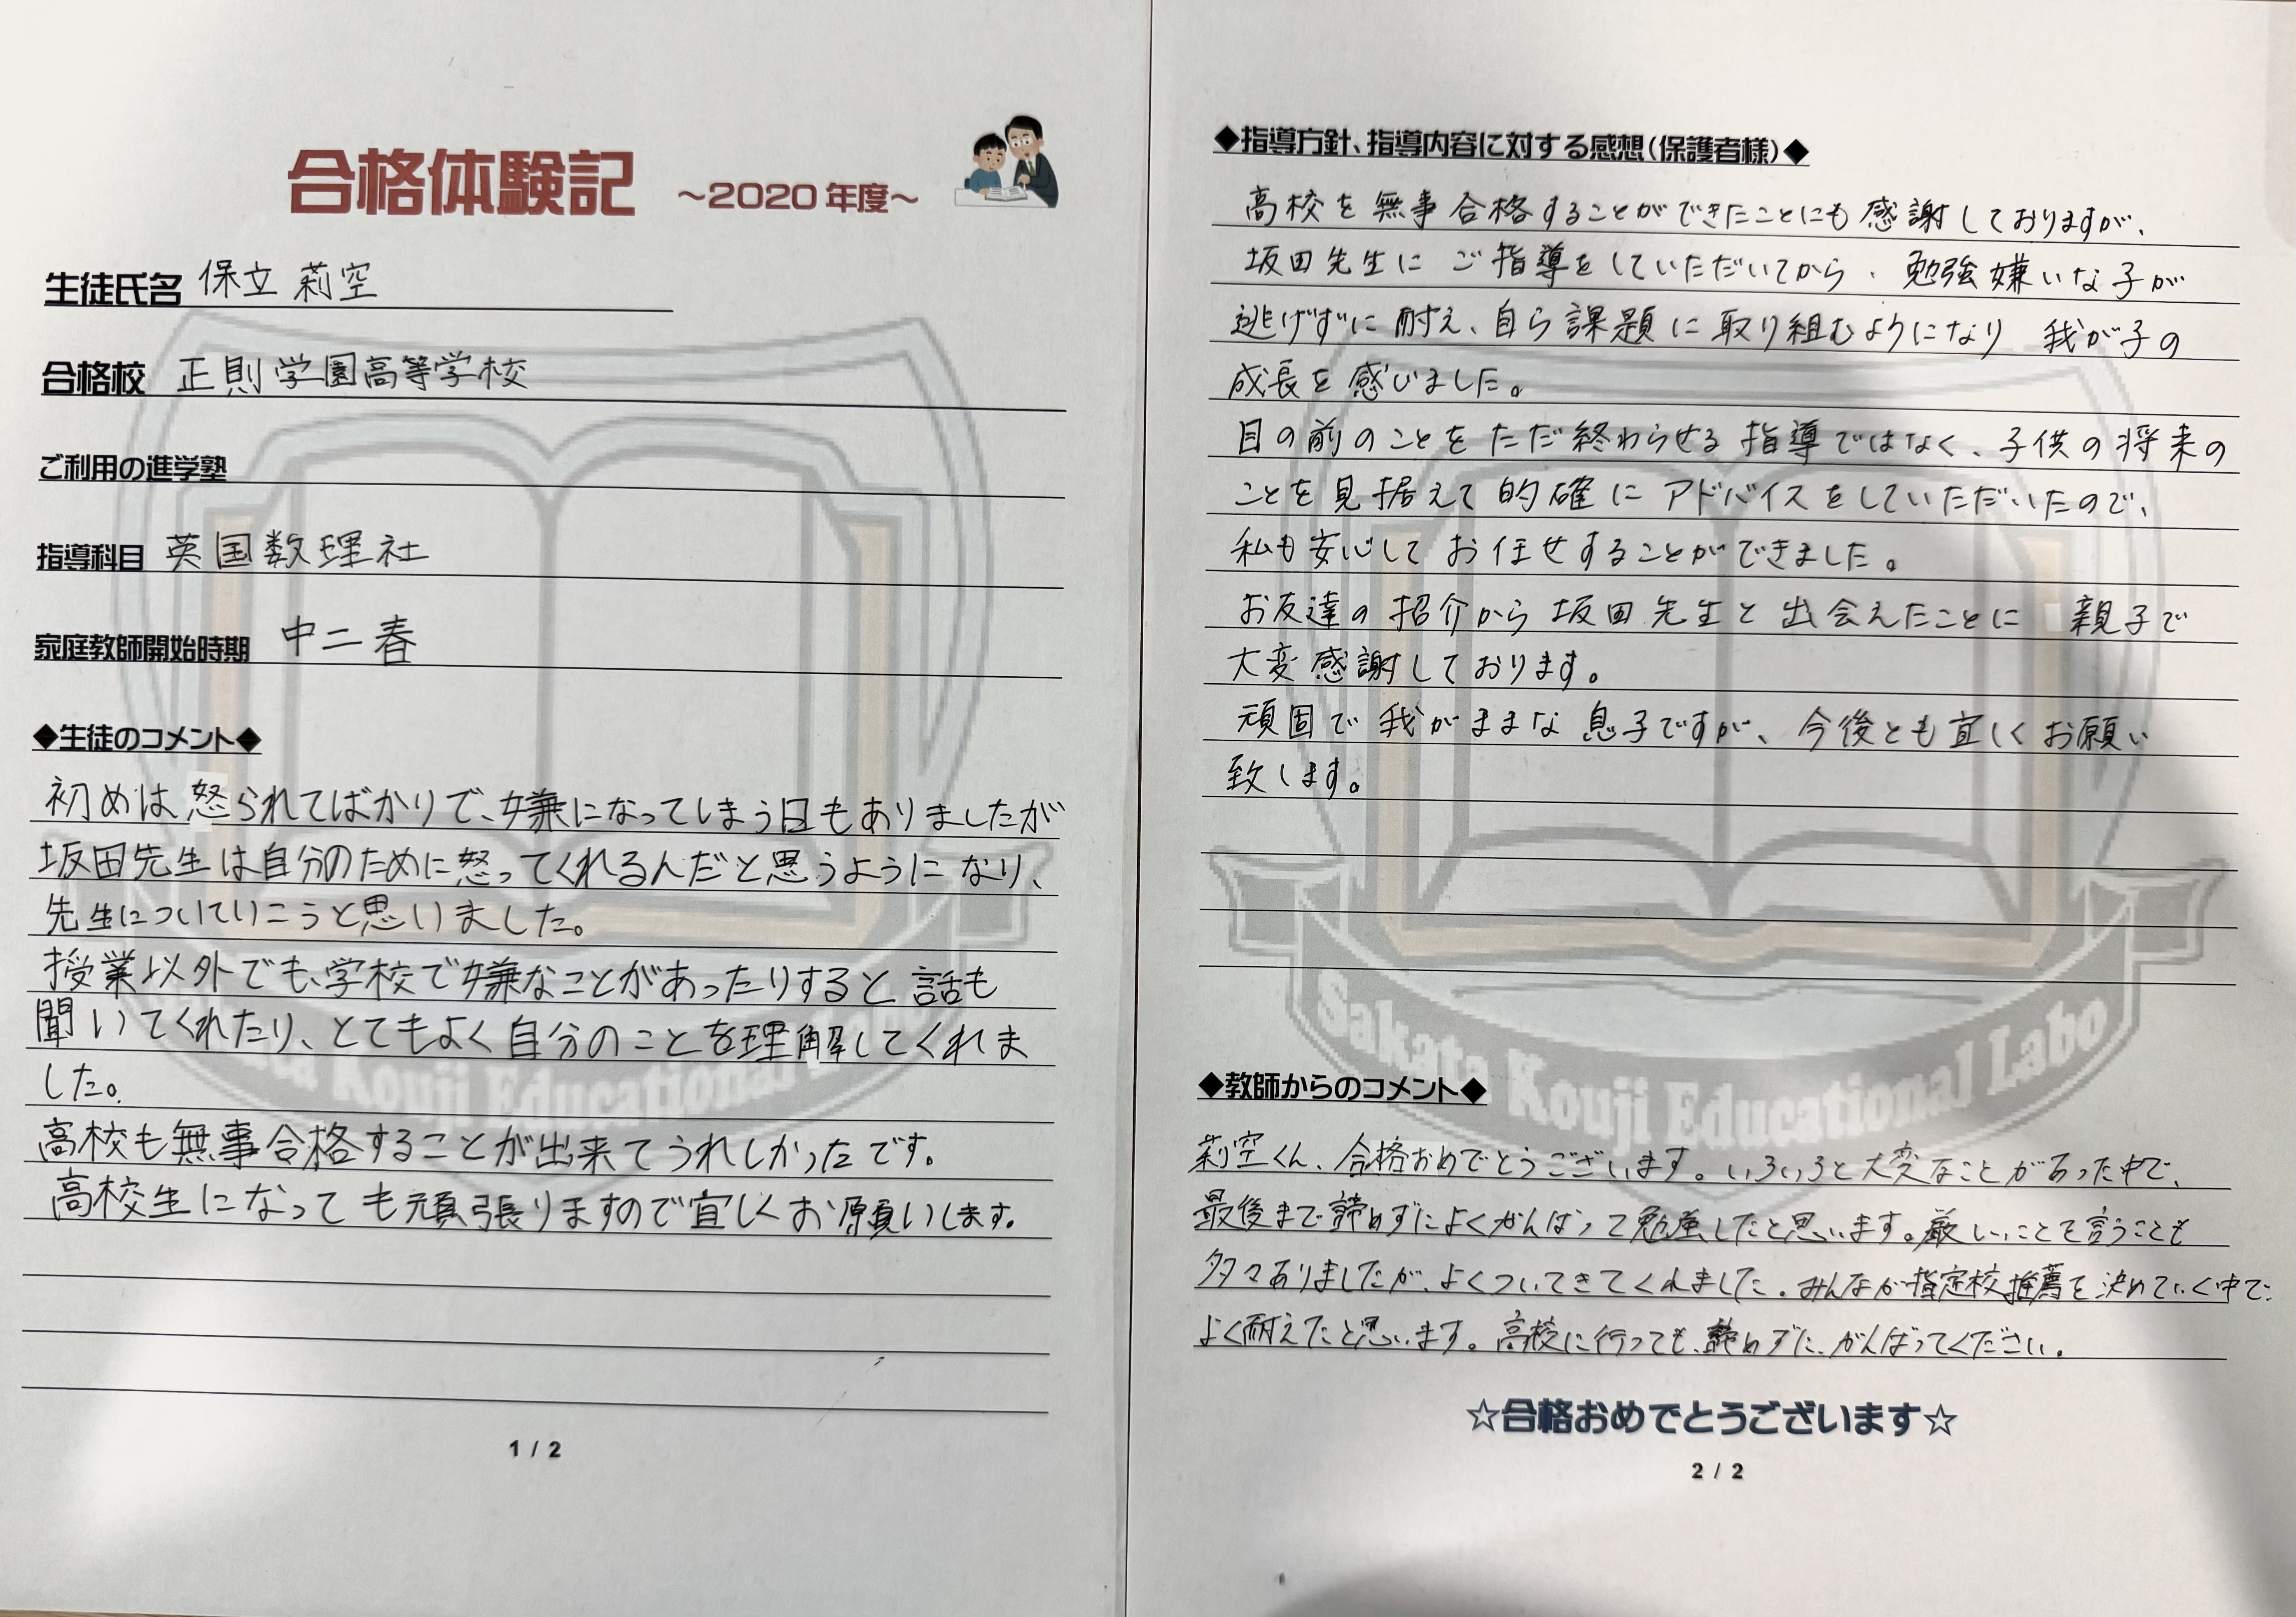 合格体験記 ～2020年度～
生徒氏名 保立 莉空
合格校 正則学園高等学校
ご利用の進学塾
指導科目 英国数理社
家庭教師開始時期 中二春
◆生徒のコメント◆
初めは怒られてばかりで、嫌になってしまう日もありましたが
坂田先生は自分のために怒ってくれるんだと思うようになり、
先生についていこうと思いました。
授業以外でも、学校で嫌なことがあったりすると話も
聞いてくれたり、とてもよく自分のことを理解してくれま
した。
高校も無事合格することが出来てうれしかったです。
高校生になっても頑張りますので宜しくお願いします。
1 / 2
◆指導方針、指導内容に対する感想（保護者様）◆
高校を無事合格することができたことにも感謝しておりますが、
坂田先生にご指導をしていただいてから、勉強嫌いな子が
逃げずに耐え、自ら課題に取り組むようになり 我が子の
成長を感じました。
目の前のことをただ終わらせる指導ではなく、子供の将来の
ことを見据えて的確にアドバイスをしていただいたので、
私も安心してお任せすることができました。
お友達の紹介から坂田先生と出会えたことに 親子で
大変感謝しております。
頑固で我がままな息子ですが、今後とも宜しくお願い
致します。
Sakata Kouji Educational Labo
◆教師からのコメント◆
莉空くん、合格おめでとうございます。いろいろと大変なことがあった中で、
最後まで諦めずによくがんばって勉強したと思います。厳しいことを言うことも
多々ありましたが、よくついてきてくれました。みんなが指定校推薦を決めていく中で、
よく耐えたと思います。高校に行っても、諦めずに、がんばってください。
☆合格おめでとうございます☆
2 / 2